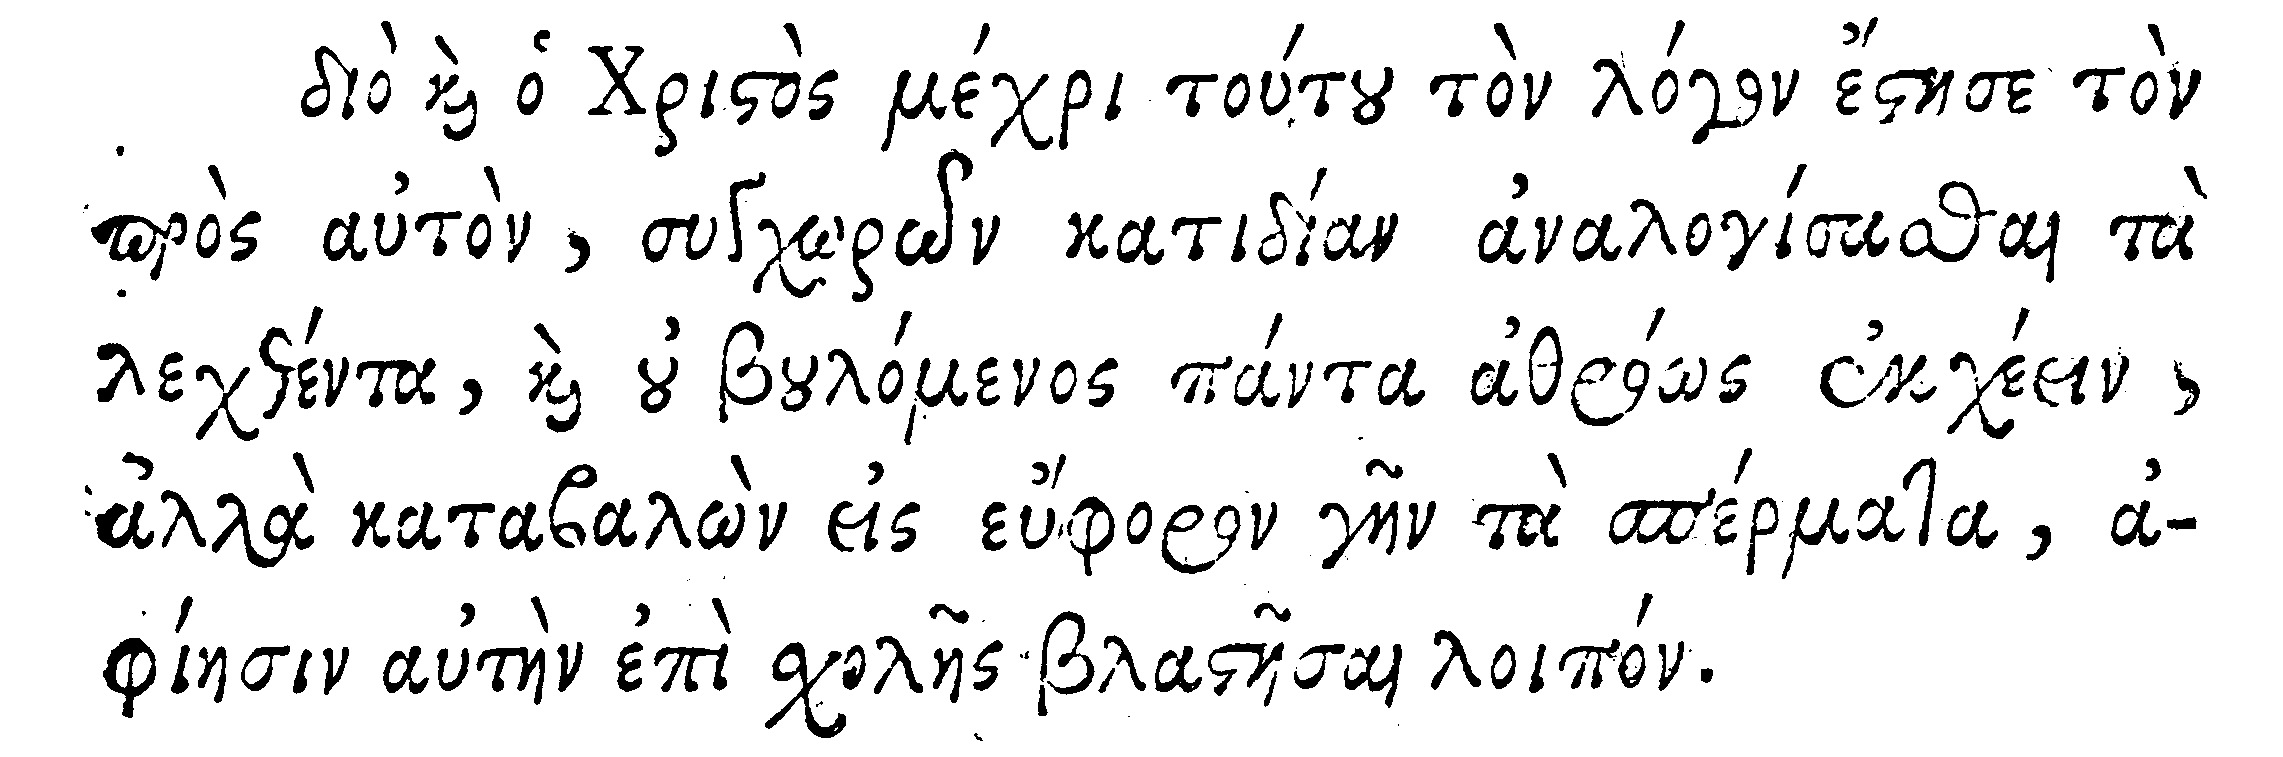 διὸ καὶ ὁ Χριστὸς μέχρι τούτου τὸν λόγον ἔστησε τὸν
πρὸς αὐτὸν, συγχωρῶν κατιδίαν ἀναλογίσασθαι τὰ
λεχθέντα, καὶ οὐ βουλόμενος πάντα ἀθρόως ἐκχέειν,
ἀλλὰ καταβαλὼν εἰς εὔφορον γῆν τὰ σπέρματα, ἀ-
φίησιν αὐτὴν ἐπὶ σχολῆς βλαστῆσαι λοιπόν.